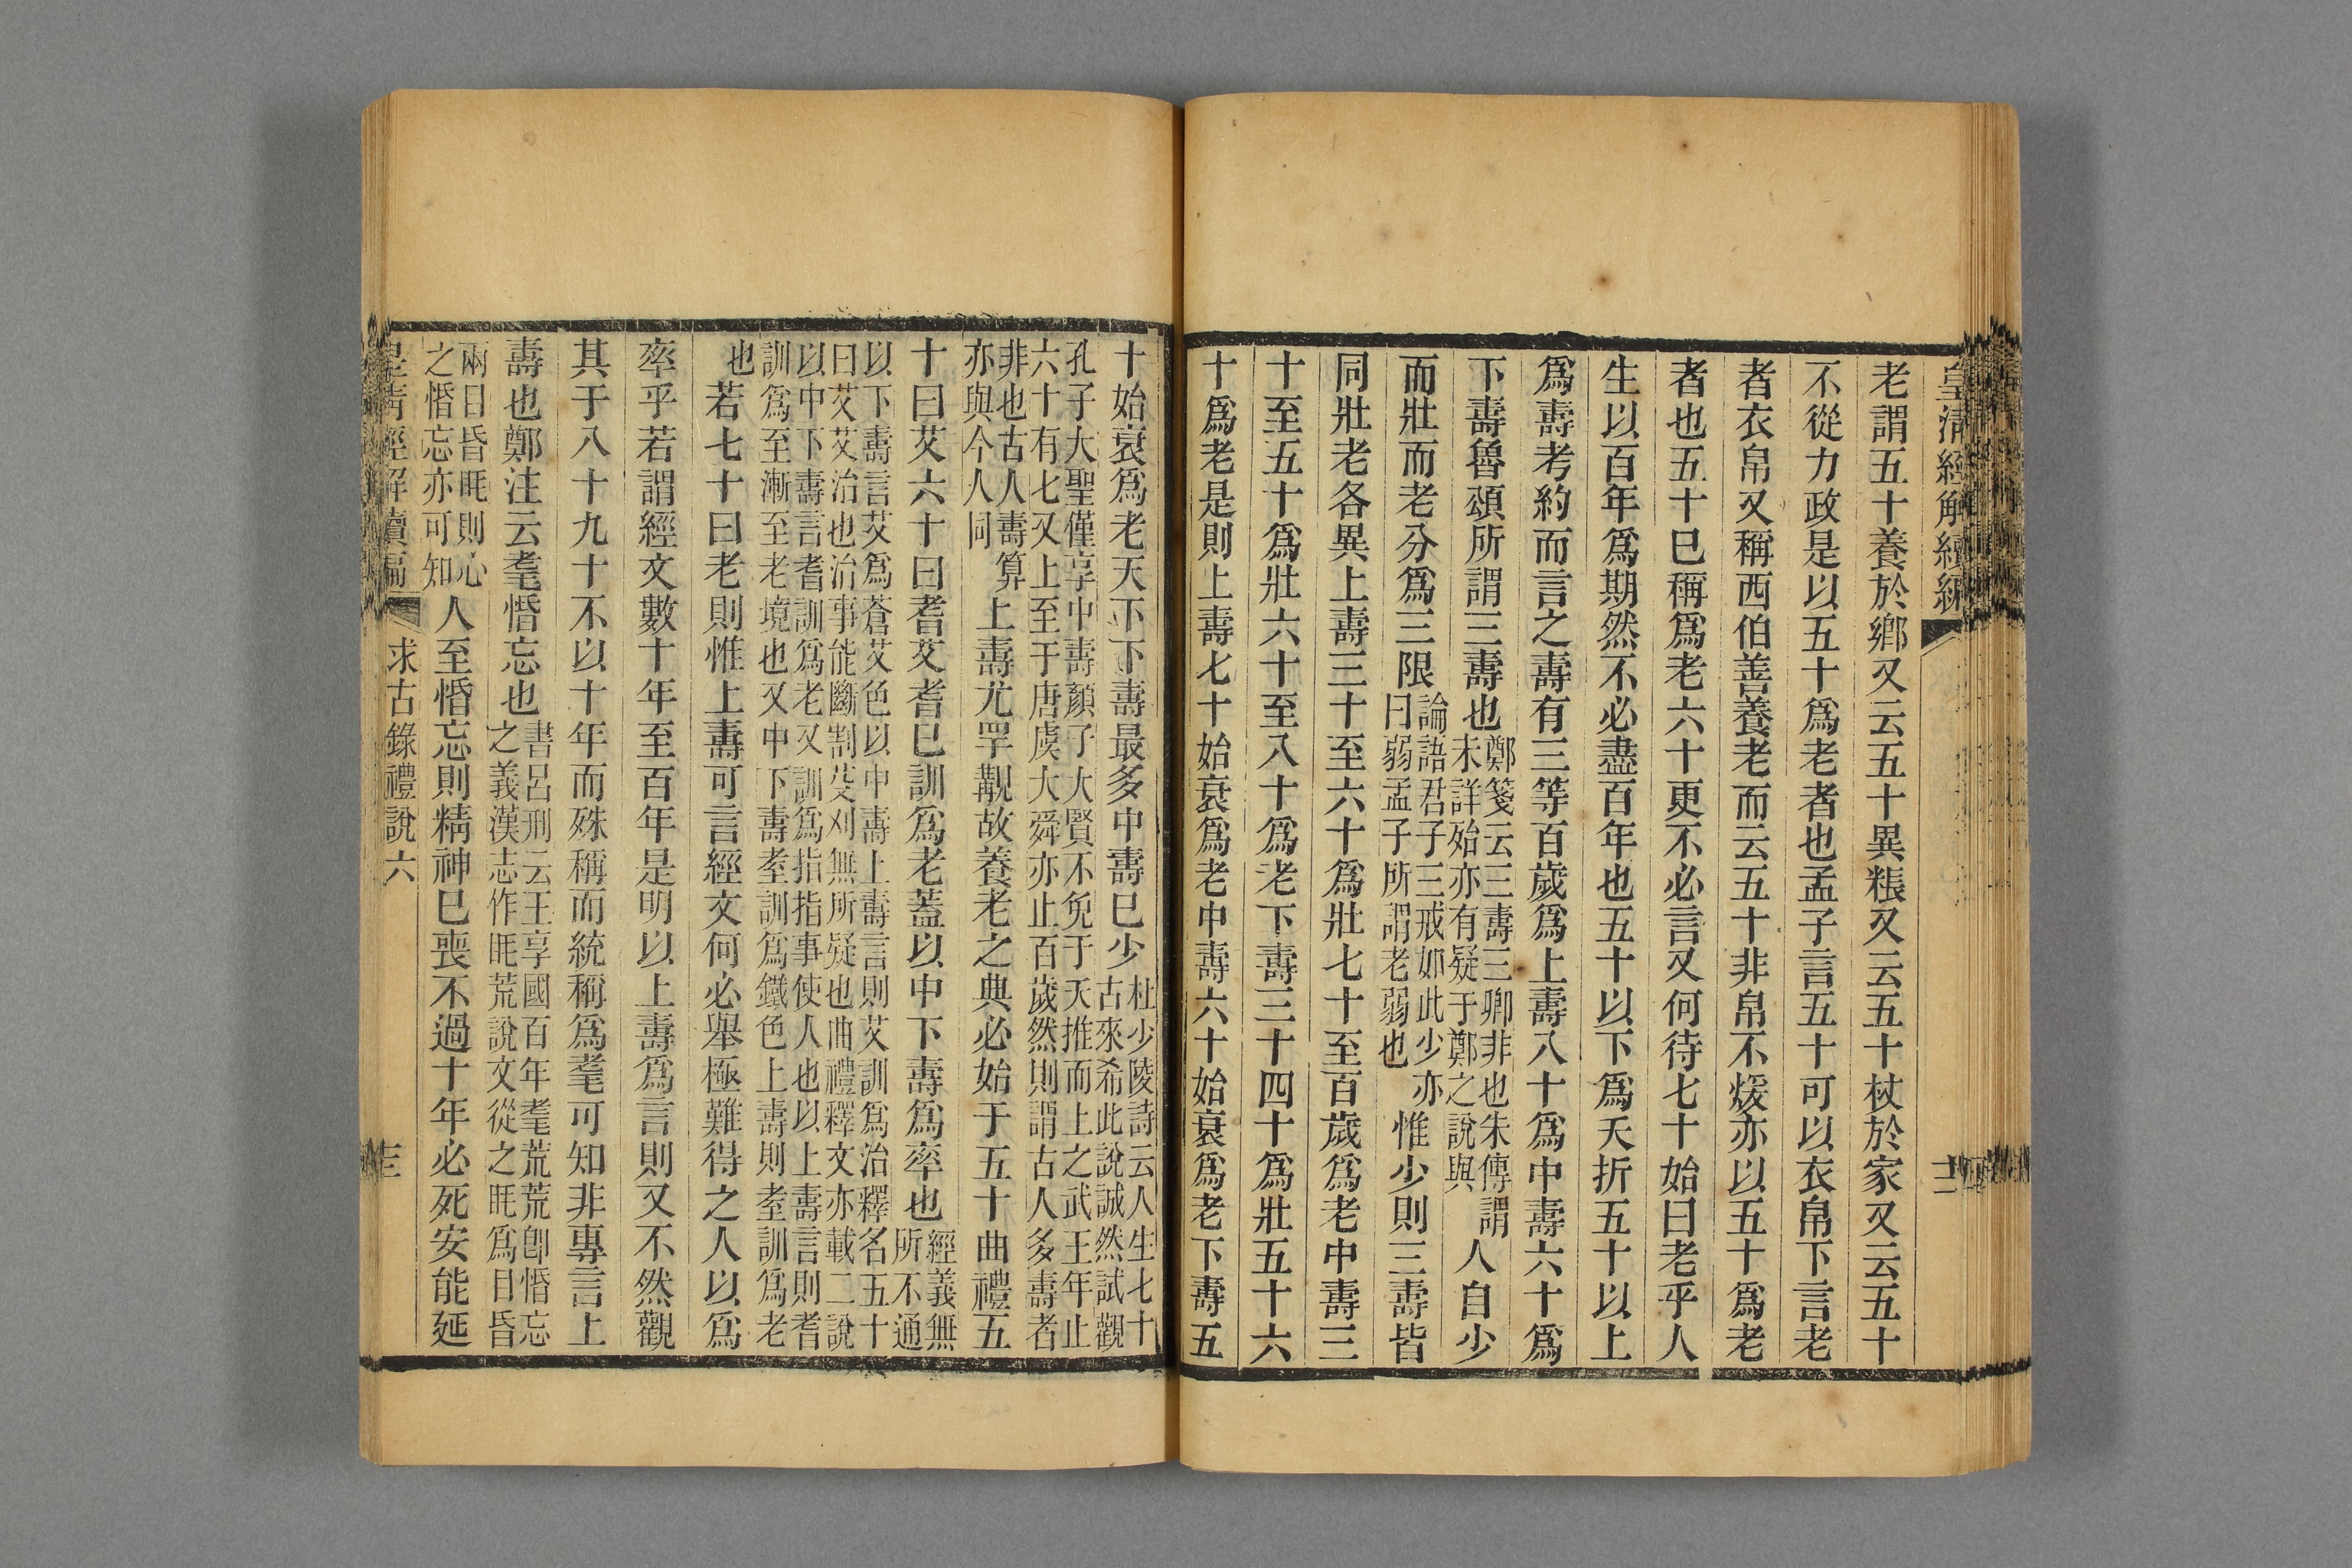 皇清經解續編
老謂五十養於鄉又云五十異粻又云五十杖於家又云五十
不從力政是以五十爲老者也孟子言五十可以衣帛下言老
者衣帛又稱西伯善養老而云五十非帛不煖亦以五十爲老
者也五十巳稱爲老六十更不必言又何待七十始曰老乎人
生以百年爲期然不必盡百年也五十以下爲夭折五十以上
爲壽考約而言之壽有三等百歲爲上壽八十爲中壽六十爲
下壽魯頌所謂三壽也鄭箋云三壽三卿非也朱傳謂未詳殆亦有疑于鄭之說與人自少
而壯而老分爲三限論語君子三戒如此少亦曰弱孟子所謂老弱也惟少則三壽皆
同壯老各異上壽三十至六十爲壯七十至百歲爲老中壽三
十至五十爲壯六十至八十爲老下壽三十四十爲壯五十六
十爲老是則上壽七十始衰爲老中壽六十始衰爲老下壽五
十始衰爲老天下下壽最多中壽巳少杜少陵詩云人生七十古來希此說誠然試觀
孔子大聖僅享中壽顏子大賢不免于夭推而上之武王年止六十有七又上至于唐虞大舜亦止百歲然則謂古人多壽者
非也古人壽算亦與今人同上壽尤罕觏故養老之典必始于五十曲禮五
十曰艾六十曰耆艾耆巳訓爲老蓋以中下壽爲率也經義無所不通
以下壽言艾爲蒼艾色以中壽上壽言則艾訓爲治釋名五十曰艾艾治也治事能斷割芟刈無所疑也曲禮釋文亦載二說
以中下壽言耆訓爲老又訓爲指指事使人也以上壽言則耆訓爲至漸至老境也又中下壽耋訓爲鐵色上壽則耋訓爲老
也若七十曰老則惟上壽可言經文何必舉極難得之人以爲
率乎若謂經文數十年至百年是明以上壽爲言則又不然觀
其于八十九十不以十年而殊稱而統稱爲耄可知非專言上
壽也鄭注云耄惛忘也書呂刑云王享國百年耄荒荒卽惛忘之義漢志作眊荒說文從之眊爲目昏
兩目昏眊則心之惛忘亦可知人至惛忘則精神巳喪不過十年必死安能延
皇清經解續編
求古錄禮說六